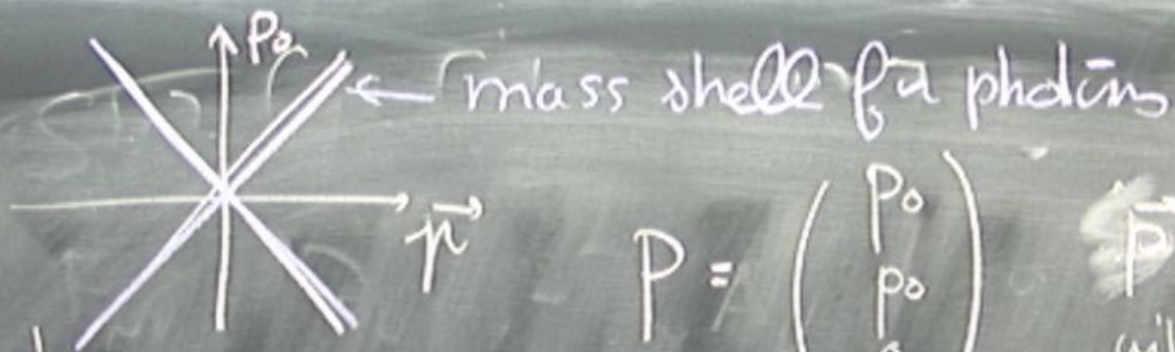 p₀
← mass shell for photons
p⃗
P = ( p₀
p₀
p⃗